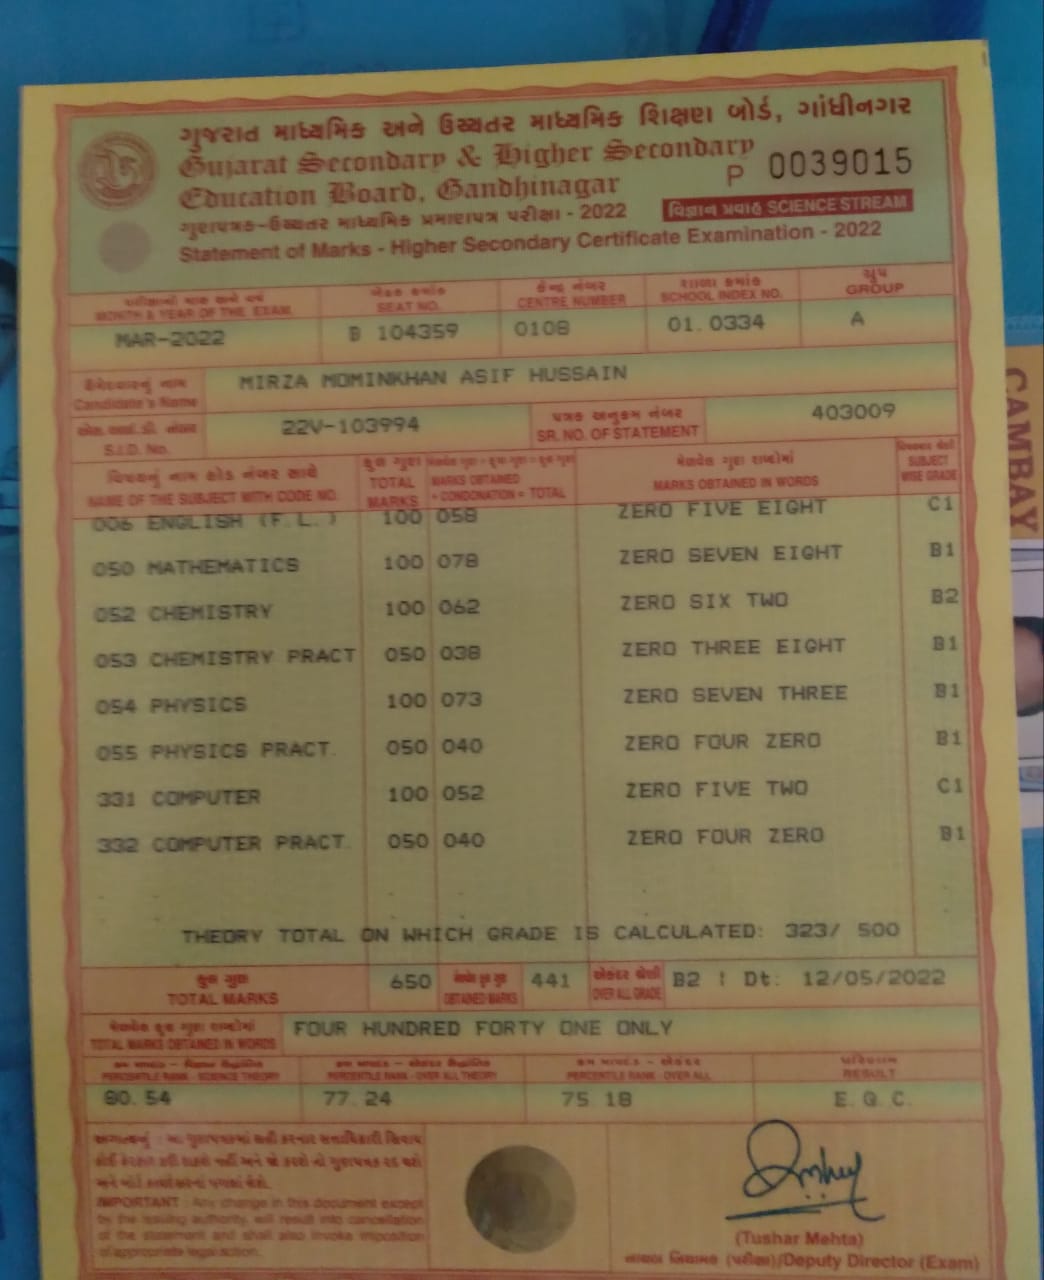 ગુજરાત માધ્યમિક અને ઉચ્ચતર માધ્યમિક શિક્ષણ બોર્ડ, ગાંધીનગર
Gujarat Secondary & Higher Secondary
Education Board, Gandhinagar
P 0039015
ગુણપત્રક-ઉચ્ચતર માધ્યમિક પ્રમાણપત્ર પરીક્ષા - 2022
વિજ્ઞાન પ્રવાહ SCIENCE STREAM
Statement of Marks - Higher Secondary Certificate Examination - 2022
પરીક્ષાનો માસ અને વર્ષ બેઠક ક્રમાંક કેન્દ્ર નંબર શાળા ક્રમાંક ગ્રુપ
MONTH & YEAR OF THE EXAM. SEAT NO. CENTRE NUMBER SCHOOL INDEX NO. GROUP
MAR-2022 B 104359 0108 01.0334 A
ઉમેદવારનું નામ
Candidate's Name
MIRZA MOMINKHAN ASIF HUSSAIN
એસ.આઈ.ડી. નંબર
S.I.D. No.
22V-103994
પત્રક અનુક્રમ નંબર
SR. NO. OF STATEMENT
403009
વિષયનું નામ કોડ નંબર સાથે
NAME OF THE SUBJECT WITH CODE NO.
કુલ ગુણ
TOTAL MARKS
MARKS OBTAINED
+ CONDONATION = TOTAL
મેળવેલ ગુણ શબ્દોમાં
MARKS OBTAINED IN WORDS
SUBJECT
WISE GRADE
006 ENGLISH (F.L.) 100 058 ZERO FIVE EIGHT C1
050 MATHEMATICS 100 078 ZERO SEVEN EIGHT B1
052 CHEMISTRY 100 062 ZERO SIX TWO B2
053 CHEMISTRY PRACT 050 038 ZERO THREE EIGHT B1
054 PHYSICS 100 073 ZERO SEVEN THREE B1
055 PHYSICS PRACT. 050 040 ZERO FOUR ZERO B1
331 COMPUTER 100 052 ZERO FIVE TWO C1
332 COMPUTER PRACT. 050 040 ZERO FOUR ZERO B1
THEORY TOTAL ON WHICH GRADE IS CALCULATED: 323/ 500
કુલ ગુણ
TOTAL MARKS
650
મેળવેલ કુલ ગુણ
OBTAINED MARKS
441
એકંદર શ્રેણી
OVER ALL GRADE
B2 | Dt: 12/05/2022
મેળવેલ કુલ ગુણ શબ્દોમાં
TOTAL MARKS OBTAINED IN WORDS
FOUR HUNDRED FORTY ONE ONLY
પરિણામ
PERCENTILE RANK - SCIENCE THEORY PERCENTILE RANK - OVER ALL THEORY PERCENTILE RANK - OVER ALL RESULT
80.54 77.24 75.18 E.Q.C.
IMPORTANT : Any change in this document except
by the issuing authority, will result into cancellation
of the statement and shall also invoke imposition
of appropriate legal action.
(Tushar Mehta)
નાયબ નિયામક (પરીક્ષા)/Deputy Director (Exam)
CAMBAY